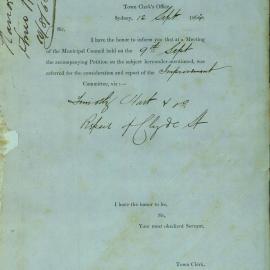 Town Clerk's Office,
Sydney, 12 Sept 1864
Sir,
I have the honor to inform you that at a Meeting
of the Municipal Council held on the 9th Sept
the accompanying Petition on the subject hereunder-mentioned, was
referred for the consideration and report of the Improvement
Committee, viz:—
Timothy Hart & or
Repair of Clyde St
I have the honor to be,
Sir,
Your most obedient Servant,
Town Clerk.